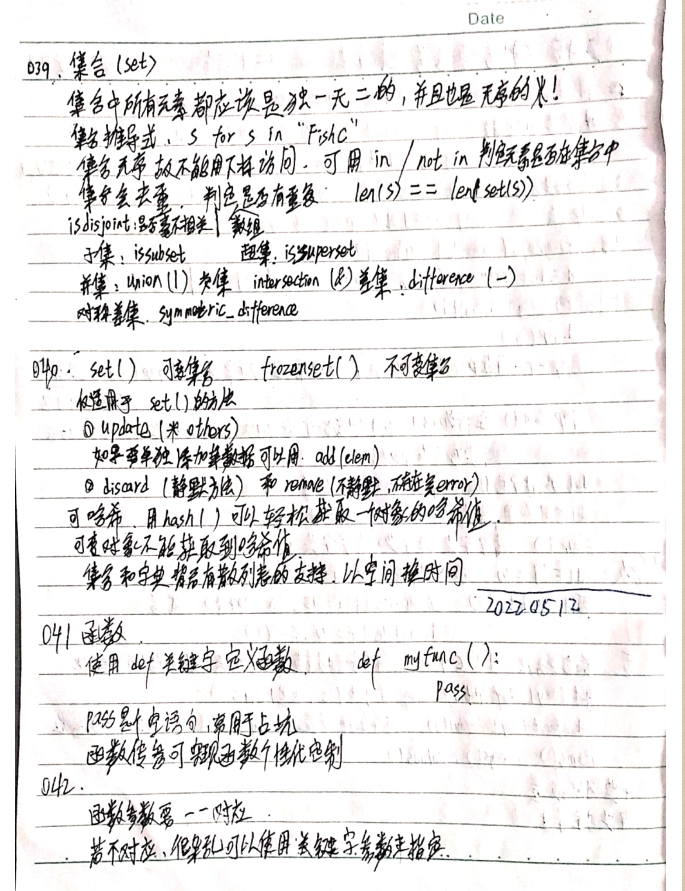 Date
039. 集合 (set)
集合中所有元素都应该是独一无二的,并且也是无序的!
集合推导式. s for s in "FishC"
集合无序故不能用下标访问. 可用 in / not in 判定元素是否在集合中
集合会去重. 判定是否有重复 len(s) == len(set(s))
isdisjoint:是否毫不相关
子集: issubset 超集. issuperset
并集: union (|) 交集 intersection (&) 差集: difference (-)
对称差集. symmetric_difference
040. set() 可变集合 frozenset() 不可变集合
仅适用于 set() 的方法
① update (* others)
如果要单独添加单数据可以用 add(elem)
② discard (静默方法) 和 remove (不静默,不存在会error)
可哈希. 用hash() 可以轻松获取一个对象的哈希值.
可变对象不能获取到哈希值
集合和字典背后有散列表的支持. 以空间换时间
2022.05.12
041 函数.
使用 def 关键字 定义函数. def myfunc():
pass.
pass是个空语句,常用于占坑
函数传参可实现函数个性化定制
042.
函数参数需一一对应
若不对应、很杂乱可以使用关键字参数来指定.